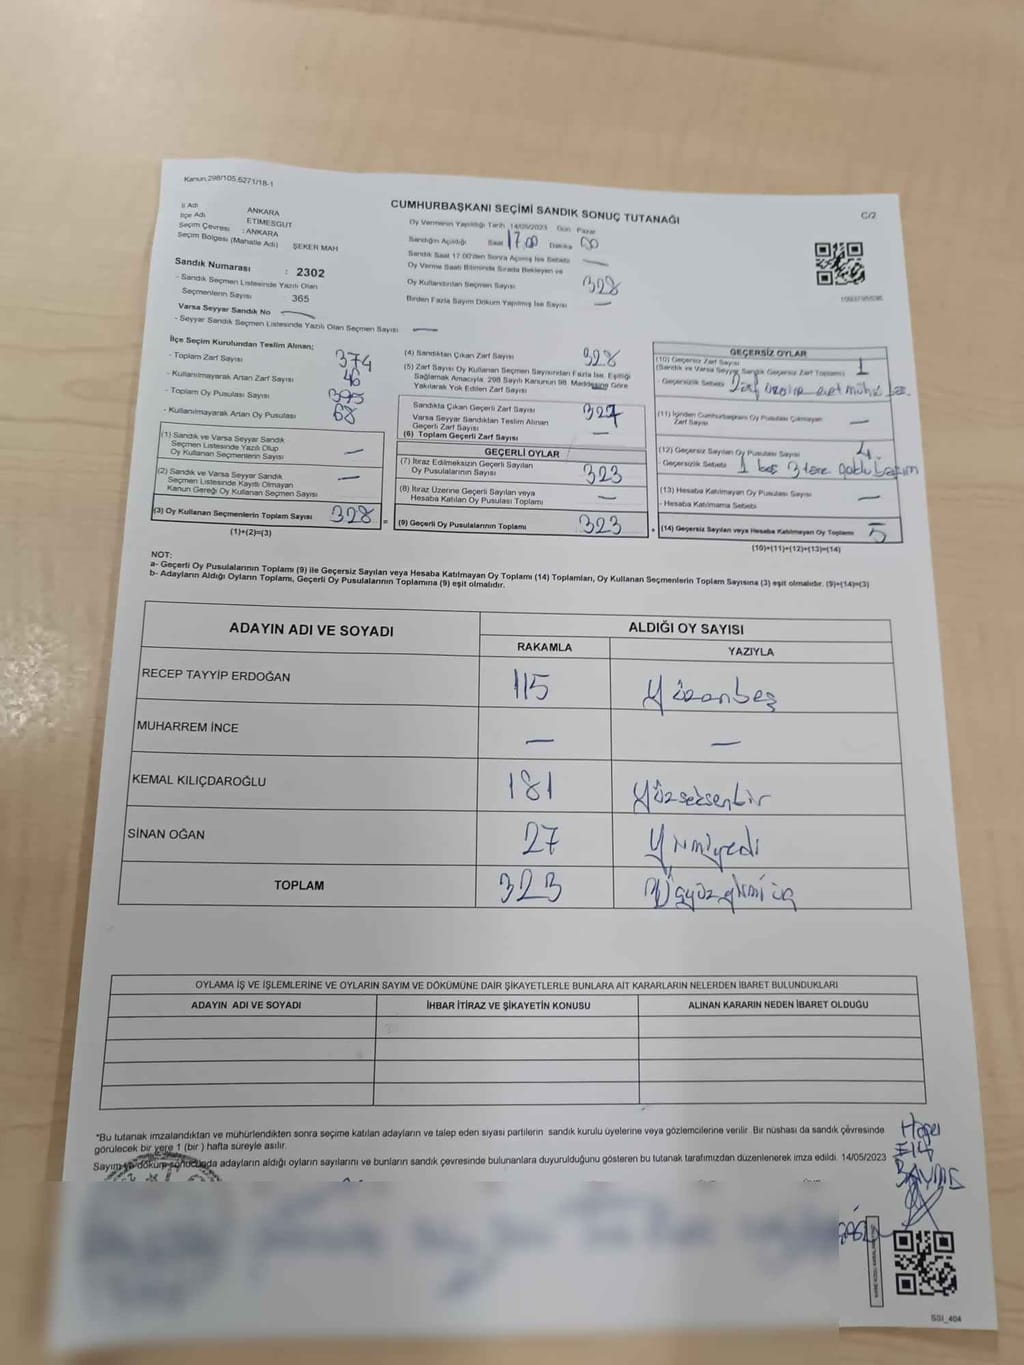 Kanun.298/105.6271/18-1
CUMHURBAŞKANI SEÇİMİ SANDIK SONUÇ TUTANAĞI
C/2
İl Adı ANKARA
İlçe Adı ETİMESGUT
Seçim Çevresi : ANKARA
Seçim Bölgesi (Mahalle Adı) ŞEKER MAH
Sandık Numarası : 2302
- Sandık Seçmen Listesinde Yazılı Olan
Seçmenlerin Sayısı 365
Varsa Seyyar Sandık No —
- Seyyar Sandık Seçmen Listesinde Yazılı Olan Seçmen Sayısı —
Oy Vermenin Yapıldığı Tarih 14/05/2023 Gün Pazar
Sandığın Açıldığı Saat 17.00 Dakika 00
Sandık Saat 17.00'den Sonra Açılmış İse Sebebi —
Oy Verme Saati Bitiminde Sırada Bekleyen ve
Oy Kullandırılan Seçmen Sayısı 328
Birden Fazla Sayım Döküm Yapılmış İse Sayısı —
İlçe Seçim Kurulundan Teslim Alınan;
- Toplam Zarf Sayısı 374
- Kullanılmayarak Artan Zarf Sayısı 46
- Toplam Oy Pusulası Sayısı 395
- Kullanılmayarak Artan Oy Pusulası 68
(1) Sandık ve Varsa Seyyar Sandık
Seçmen Listesinde Yazılı Olup
Oy Kullanan Seçmenlerin Sayısı —
(2) Sandık ve Varsa Seyyar Sandık
Seçmen Listesinde Kayıtlı Olmayan
Kanun Gereği Oy Kullanan Seçmen Sayısı —
(3) Oy Kullanan Seçmenlerin Toplam Sayısı 328 =
(1)+(2)=(3)
(4) Sandıktan Çıkan Zarf Sayısı 328
(5) Zarf Sayısı Oy Kullanan Seçmen Sayısından Fazla İse, Eşitliği
Sağlamak Amacıyla, 298 Sayılı Kanunun 98. Maddesine Göre
Yakılarak Yok Edilen Zarf Sayısı —
Sandıkta Çıkan Geçerli Zarf Sayısı 327
Varsa Seyyar Sandıktan Teslim Alınan
Geçerli Zarf Sayısı —
(6) Toplam Geçerli Zarf Sayısı
GEÇERLİ OYLAR
(7) İtiraz Edilmeksizin Geçerli Sayılan
Oy Pusulalarının Sayısı 323
(8) İtiraz Üzerine Geçerli Sayılan veya
Hesaba Katılan Oy Pusulası Toplamı —
(9) Geçerli Oy Pusulalarının Toplamı 323 +
GEÇERSİZ OYLAR
(10) Geçersiz Zarf Sayısı
(Sandık ve Varsa Seyyar Sandık Geçersiz Zarf Toplamı) 1
- Geçersizlik Sebebi Zarf üzerine evet mühür
(11) İçinden Cumhurbaşkanı Oy Pusulası Çıkmayan
Zarf Sayısı —
(12) Geçersiz Sayılan Oy Pusulası Sayısı 4
- Geçersizlik Sebebi 1 boş 3 tane çoklu basım
(13) Hesaba Katılmayan Oy Pusulası Sayısı —
- Hesaba Katılmama Sebebi
(14) Geçersiz Sayılan veya Hesaba Katılmayan Oy Toplamı 5
(10)+(11)+(12)+(13)=(14)
NOT:
a- Geçerli Oy Pusulalarının Toplamı (9) ile Geçersiz Sayılan veya Hesaba Katılmayan Oy Toplamı (14) Toplamları, Oy Kullanan Seçmenlerin Toplam Sayısına (3) eşit olmalıdır. (9)+(14)=(3)
b- Adayların Aldığı Oyların Toplamı, Geçerli Oy Pusulalarının Toplamına (9) eşit olmalıdır.
ADAYIN ADI VE SOYADI ALDIĞI OY SAYISI
RAKAMLA YAZIYLA
RECEP TAYYİP ERDOĞAN 115 Yüzonbeş
MUHARREM İNCE — —
KEMAL KILIÇDAROĞLU 181 Yüzseksenbir
SİNAN OĞAN 27 Yirmiyedi
TOPLAM 323 Üçyüzyirmi üç
OYLAMA İŞ VE İŞLEMLERİNE VE OYLARIN SAYIM VE DÖKÜMÜNE DAİR ŞİKAYETLERLE BUNLARA AİT KARARLARIN NELERDEN İBARET BULUNDUKLARI
ADAYIN ADI VE SOYADI İHBAR İTİRAZ VE ŞİKAYETİN KONUSU ALINAN KARARIN NEDEN İBARET OLDUĞU
*Bu tutanak imzalandıktan ve mühürlendikten sonra seçime katılan adayların ve talep eden siyasi partilerin sandık kurulu üyelerine veya gözlemcilerine verilir. Bir nüshası da sandık çevresinde
görülecek bir yere 1 (bir) hafta süreyle asılır.
Sayım ve döküm sonucunda adayların aldığı oyların sayılarını ve bunların sandık çevresinde bulunanlara duyurulduğunu gösteren bu tutanak tarafımızdan düzenlenerek imza edildi. 14/05/2023
SSI_404